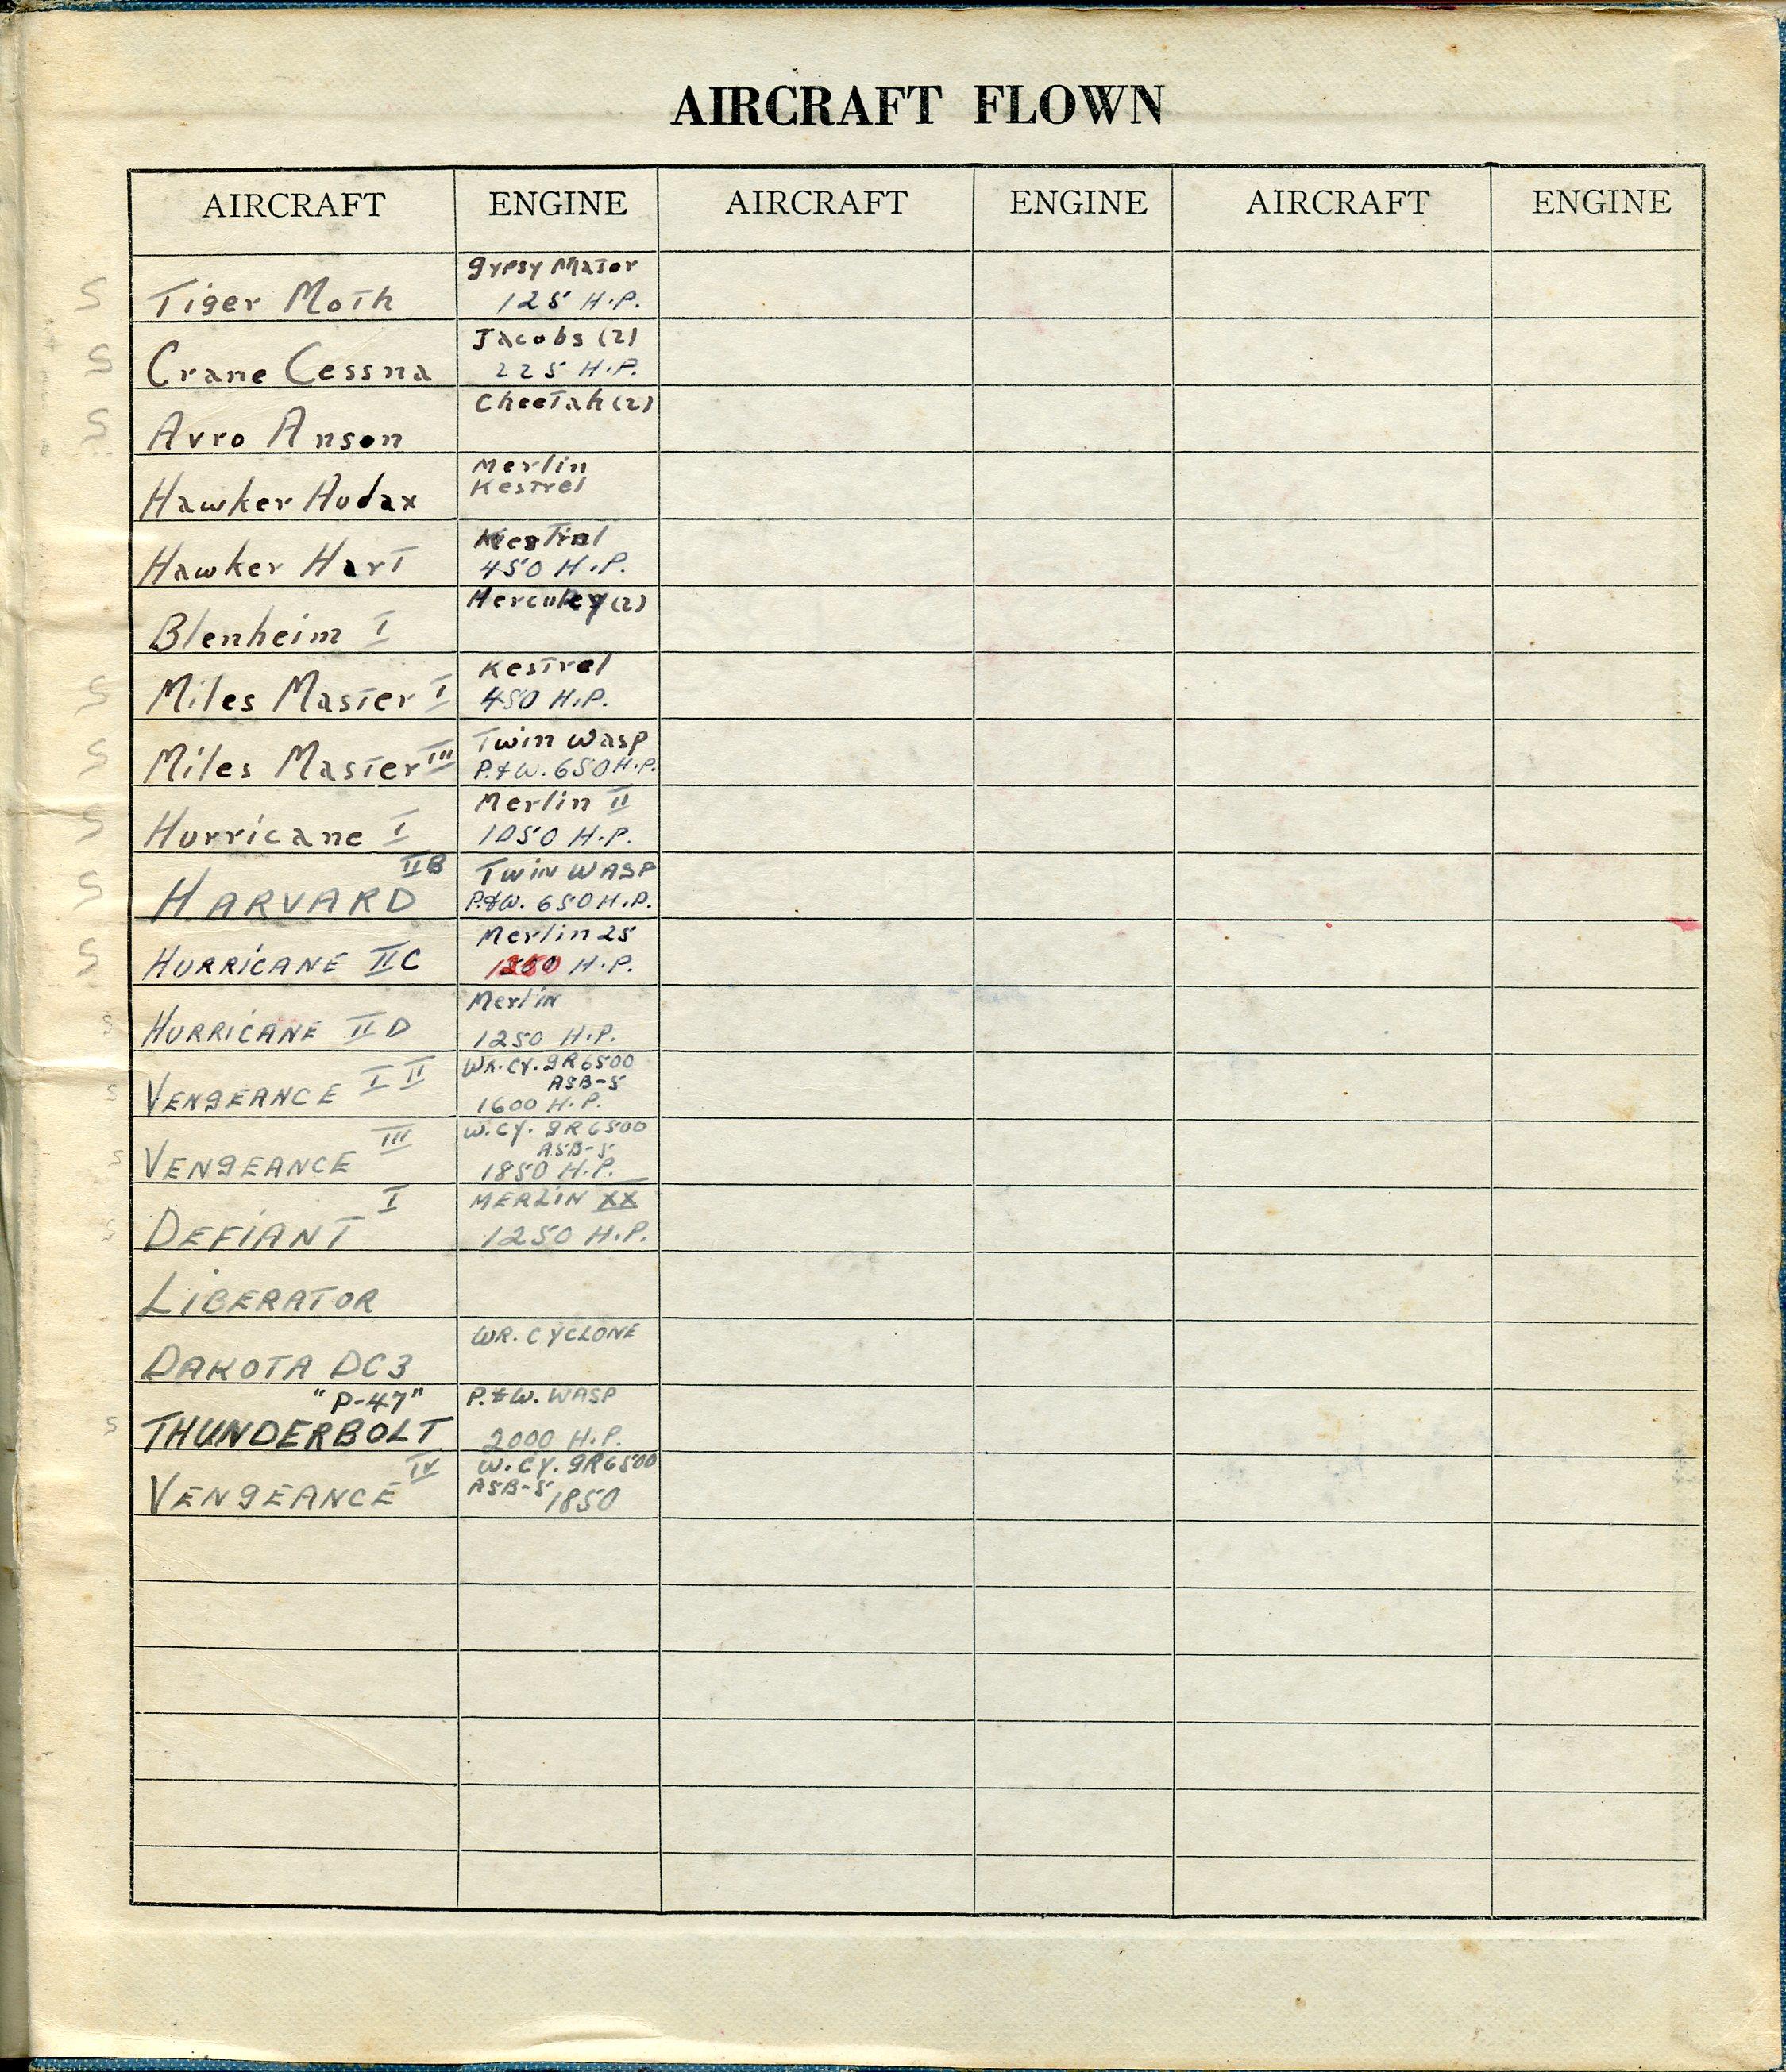 AIRCRAFT FLOWN
AIRCRAFT ENGINE AIRCRAFT ENGINE AIRCRAFT ENGINE
gypsy Major
S Tiger Moth 125 H.P.
Jacobs (2)
S Crane Cessna 225 H.P.
Cheetah (2)
S Avro Anson
Merlin
Hawker Audax Kestrel
Kestrel
Hawker Hart 450 H.P.
(2)
Blenheim I
Kestrel
S Miles Master I 450 H.P.
Twin Wasp
S Miles Master III P.&W. 650 H.P.
Merlin II
S Hurricane I 1050 H.P.
IIB TWIN WASP
S HARVARD P.&W. 650 H.P.
Merlin 25
S HURRICANE IIC 1260 H.P.
Merlin
S HURRICANE II D 1250 H.P.
WR. CY. GR6500
S VENGEANCE I II ASB-5
1600 H.P.
III W. CY. GR6500
ASB-5
S VENGEANCE 1850 H.P.
I MERLIN XX
S DEFIANT 1250 H.P.
LIBERATOR
WR. CYCLONE
DAKOTA DC3
"P-47" P.&W. WASP
S THUNDERBOLT 2000 H.P.
IV W. CY. GR6500
VENGEANCE ASB-5 1850